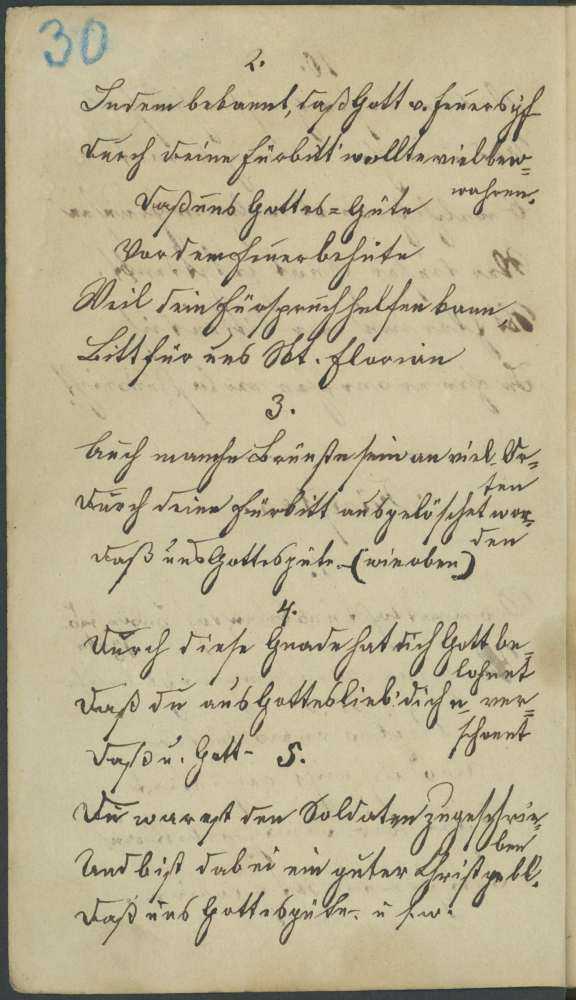 30
2.
Indem bekannt, daß Gott v. Feuers
durch deine Fürbitt wollte viel bew=
wahren.
Daß uns Gottes=Güte
Vor dem Feuer behüte
Weil dein Fürspruch helfen kann
Bitt für uns Skt. Florian
3.
Auch manche Brünste sein an viel Or=
ten
Durch deine Fürbitt ausgelöschet wor=
den
daß uns Gottesgüte (wie oben)
4.
Durch diese Gnade hat dich Gott be=
lohnet
Daß du aus Gotteslieb' dich n. ver=
schont
Daß u. Gott-
5.
Du warest den Soldaten zugeschrie=
ben
Und bist dabei ein guter Christ gebl.
Daß uns Gottesgüte. u. s. w.